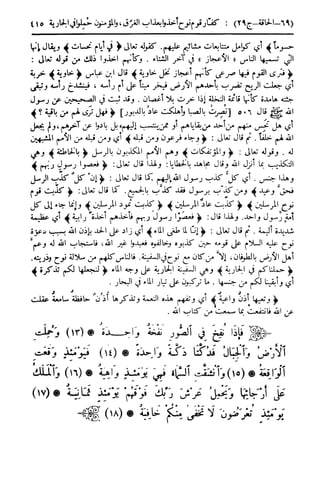 (٦٩-الحاقة-ج٢٩) : كفار قوم نوح أخذوا بعذاب الغرق، والمؤمنون حملوا في الجارية ٤١٥
حسوماً﴾ أي كوامل متتابعات مشائيم عليهم. كقوله تعالى ﴿في أيام نحسات﴾ ويقال إنها
التي تسميها الناس «الأعجاز» في آخر الشتاء. وكأنهم أخذوا ذلك من قوله تعالى :
﴿فترى القوم فيها صرعى كأنهم أعجاز نخل خاوية﴾ قال ابن عباس ﴿خاوية﴾ خربة
أي جعلت الريح تضرب بأحدهم الأرض فيخر ميتاً على أم رأسه، فينشدخ رأسه وتبقى
جثته هامدة كأنها قائمة النخلة إذا خرت بلا أغصان. وقد ثبت في الصحيحين عن رسول
الله ﷺ قال ٥٠٦ [نصرت بالصبا وأهلكت عاد بالدبور] ﴿فهل ترى لهم من باقية﴾ ؟
أي هل تحس منهم من أحد من بقاياهم أو ممن ينتسب إليهم، بل بادوا عن آخرهم، ولم يجعل
الله لهم خلفاً. ثم قال تعالى : ﴿وجاء فرعون ومن قبله﴾ أي ومن قبله من الأمم المشبهين
له. وقوله تعالى: ﴿والمؤتفكات﴾ وهم الأمم المكذبون بالرسل ﴿بالخاطئة﴾ وهي
التكذيب بما أنزل الله وقال مجاهد بالخطايا: ولهذا قال تعالى: ﴿فعصوا رسول ربهم﴾
وهذا جنس. أي كل كذب رسول الله إليهم كما قال تعالى: ﴿إن كل كذب الرسل
فحق وعيد﴾ ومن كذب برسول فقد كذب بالجميع. كما قال تعالى: ﴿كذبت قوم
نوح المرسلين﴾ ﴿كذبت عاد المرسلين﴾ ﴿كذبت ثمود المرسلين﴾ وإنما جاء إلى كل
أمة رسول واحد. ولهذا قال: ﴿فعصوا رسول ربهم فأخذهم أخذة رابية﴾ أي عظيمة
شديدة أليمة. ثم قال تعالى : ﴿إنا لما طغى الماء﴾ أي زاد على الحد بإذن الله بسبب دعوة
نوح عليه السلام على قومه حين كذبوه وخالفوه فعبدوا غير الله، فاستجاب الله له وعم
أهل الأرض بالطوفان، إلا من كان مع نوح في السفينة. فالناس كلهم من سلالة نوح وذريته.
﴿حملناكم في الجارية﴾ وهي السفينة الجارية على وجه الماء ﴿لنجعلها لكم تذكرة﴾
أي وأبقينا لكم من جنسها، ما تركبون على تيار الماء في البحار.
﴿وتعيها أذن واعية﴾ أي وتفهم هذه النعمة وتذكرها أذن حافظة سامعة عقلت
عن الله فانتفعت بما سمعت من كتاب الله .
﴿فَإِذَا نُفِخَ فِي الصُّورِ نَفْخَةٌ وَاحِدَةٌ﴾ (١٣) وَحُمِلَتِ
الْأَرْضُ وَالْجِبَالُ فَدُكَّتَا دَكَّةً وَاحِدَةً (١٤) فَيَوْمَئِذٍ وَقَعَتِ
الْوَاقِعَةُ (١٥) وَانْشَقَّتِ السَّمَاءُ فَهِيَ يَوْمَئِذٍ وَاهِيَةٌ (١٦) وَالْمَلَكُ
عَلَى أَرْجَائِهَا وَيَحْمِلُ عَرْشَ رَبِّكَ فَوْقَهُمْ يَوْمَئِذٍ ثَمَانِيَةٌ (١٧)
يَوْمَئِذٍ تُعْرَضُونَ لَا تَخْفَى مِنْكُمْ خَافِيَةٌ (١٨)